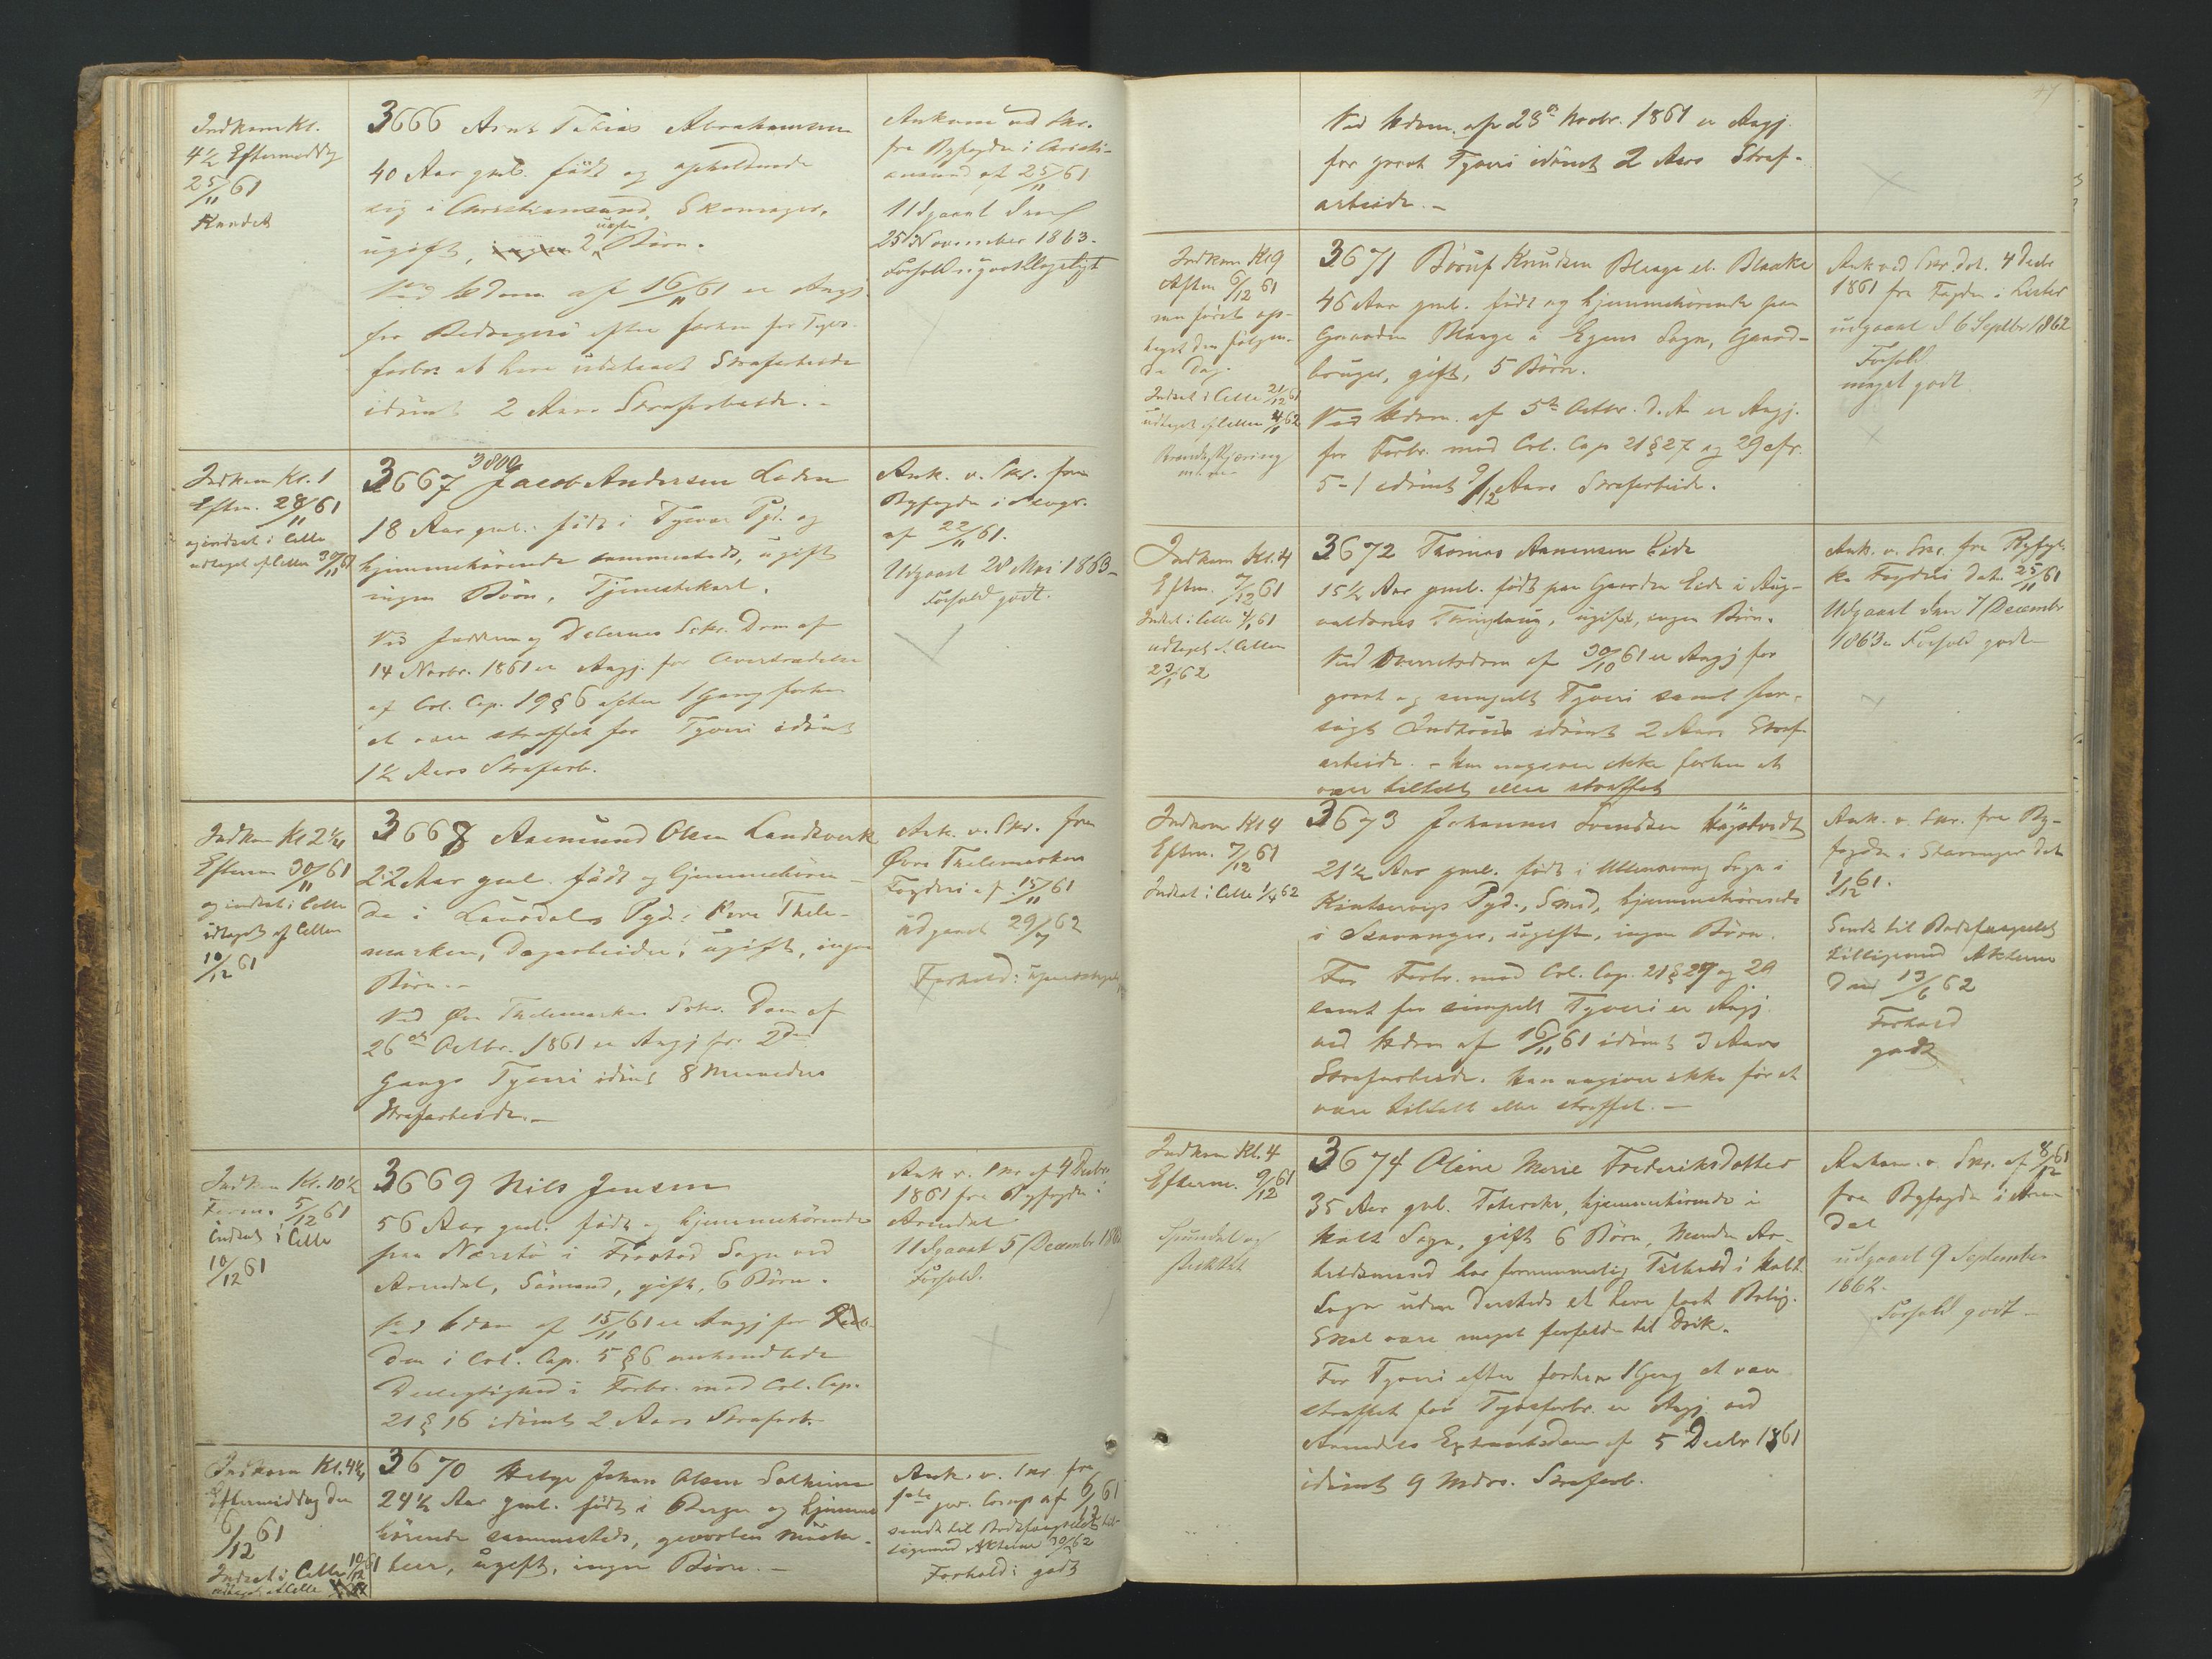 Indkom Kl.
4½ Eftermiddag
25/11 61
3666 Arnt Tobias Abrahamsen
40 Aar gml. födt og opholdende
sig i Christiansund, Skomager,
ugift, ingen 2 uægte Börn.
Ved Hdom af 16/11 61 er Angj.
for Bedrageri efter forhen for Tyvs-
forbr. at have udstaaet Strafarbeide
idömt 2 Aars Strafarbeide. -
Ankom ved Skr.
fra Byfogden i Christi-
ansund af 25/11 61
Udgaaet den
25 November 1863.
Forhold
Indkom Kl. 1
Eftm. 28/11 61
og indsat i Celle
udtaget af Cellen 30/11 61
3800
3667 Jacob Andersen Laden
18 Aar gml. födt i Tysvær Pgl. og
hjemmehörende sammesteds, ugift
ingen Börn, Tjenestekarl.
Ved Jæderen og Dalernes Sskr. Dom af
14 Novbr. 1861 er Angj. for Overtrædelse
af Crl. Cap. 19 § 6 efter 1 Gang forhen
at være straffet for Tyveri idömt
1½ Aars Strafarb.
Ank. v. Skr. fra
Byfogden i
af 22/11 61.
Udgaaet 28 Mai 1863 -
Forhold godt.
Indkom Kl 2¼
Efterm 30/11 61
og indsat i Celle
udtaget af Cellen
10/12 61
3668 Aasmund Olsen Landsverk
22 Aar gml. födt og hjemmehören-
de i Laurdals Pgd. i Övre Thele-
marken, Dagarbeider, ugift, ingen
Börn. -
Ved Övr Thelemarkens Sskr. Dom af
26de Octbr. 1861 er Angj for 2den
Gangs Tyveri idömt 8 Maaneders
Strafarbeide. -
Ank. v. Skr. fra
Övre Thelemarkens
Fogderi af 15/11 61
udgaaet 29/7 62
Forhold:
Indkom Kl. 10½
Form. 5/12 61
indsat i Celle
10/12 61
3669 Nils Jensen
56 Aar gml. födt og hjemmehörende
paa Nærstö i Frostad Sogn ved
Arendal, Sömand, gift, 6 Börn.
Ved Hdom af 15/11 61 er Angj for
den i Crl. Cap. 5 § 6 omhandlede
Delagtighed i Forbr. mod Crl. Cap.
21 § 16 idömt 2 Aars Strafarb.
Ank v. Skr af 4 Decbr
1861 fra Byfogden i
Arendal
Udgaaet 5 Decembr 1863
Forhold.
Indkom Kl. 4½
Eftermiddag den
6/12 61
Indsat i Celle 10/12 61
udtaget af Celle
3670 Helge Johan Olsen Solheim
24½ Aar gml. födt i Bergen og hjemme
hörende sammesteds, gevorben Muske-
teer, ugift, ingen Börn. -
Ank. v. Skr fra
1ste jur. Corps af 6/12 61
sendt til Bodsfængslet til-
ligemed Akterne 30/ 62
Forhold: godt
Ved Hdom. af 28de Novbr. 1861 er Angj.
for grovt Tyveri idömt 2 Aars Straf-
arbeide. -
Indkom Kl 9
Aften 6/12 61
men först op-
taget den fölgen-
de Dag.
Indsat i Celle 21/12 61
udtaget af Cellen 4/1 62
3671 Böruf Knudsen Blaage el. Blaake
46 Aar gml. födt og hjemmehörende paa
Gaarden Blaage i Egens Sogn, Gaard-
bruger, gift, 5 Börn.
Ved Hdom. af 5te Octbr. d. A. er Angj.
for Forbr. mod Crl. Cap 21 § 27 og 29 cfr.
5-1 idömt 9/12 Aars Strafarbeide.
Ank ved Skr dat. 4 Decbr
1861 fra Fogden i Lister
udgaaet d 6 Septbr 1862
Forhold.
meget godt
Indkom Kl. 4
Eftm. 7/12 61
Indsat i Celle 4/1 61
udtaget f. Cellen
23/1 62
3672 Thomas Aanensen Eide
15½ Aar gml. födt paa Gaarden Eide i Aug-
valdsnes Thinglaug, ugift, ingen Börn.
Ved Overretsdom af 30/10 61 er Angj for
grovt og simpelt Tyveri samt for-
sögt Indbrud idömt 2 Aars Straf-
arbeide. - Han angiver ikke forhen at
være tiltalt eller straffet
Ank. v. Skr. fra Ryfyl-
ke Fogderi dat. 25/11 61
Udgaaet den 7 Decembr
1863. Forhold godt
Indkom Kl 4
Eftm. 7/12 61
Indsat i Celle 1/4 62
3673 Johannes Svendsen Högstvedt
21½ Aar gml. födt i Ullensvang Sogn i
Kintservigs Pgd., Smed, hjemmehörende
i Stavanger, ugift, ingen Börn.
For Forbr. mod Crl. Cap. 21 § 27 og 29
samt for simpelt Tyveri er Angj
ved Hdom af 16/11 61 idömt 3 Aars
Strafarbeide. Han angiver ikke för at
være tiltalt eller straffet. -
Ank. v. Skr. fra By-
fogden i Stavanger dat
1/12 61.
Sendt til Bodsfængslet
tilligemed Akterne
den 13/6 62
Forhold
godt
Indkom Kl. 4
Efterm. 9/12 61
3674 Oline Marie Frederiksdatter
35 Aar gml. Taterske, hjemmehörende i
Holt Sogn, gift 6 Börn, Manden Ar-
beidsmand har fornemmelig Tilhold i Holt
Sogn uden dersteds at have fast Bolig.
Skal være meget forfalden til Drik.
For Tyveri efter forhen 1 Gang at være
straffet for Tyvsforbr. er Angj. ved
Arendals Extraretsdom af 5 Decbr 1861
idömt 9 Mdrs. Strafarb.
Ankom. v. Skr. af 8/12 61
fra Byfogden i Aren
dal
udgaaet 9 September
1862.
Forhold godt -